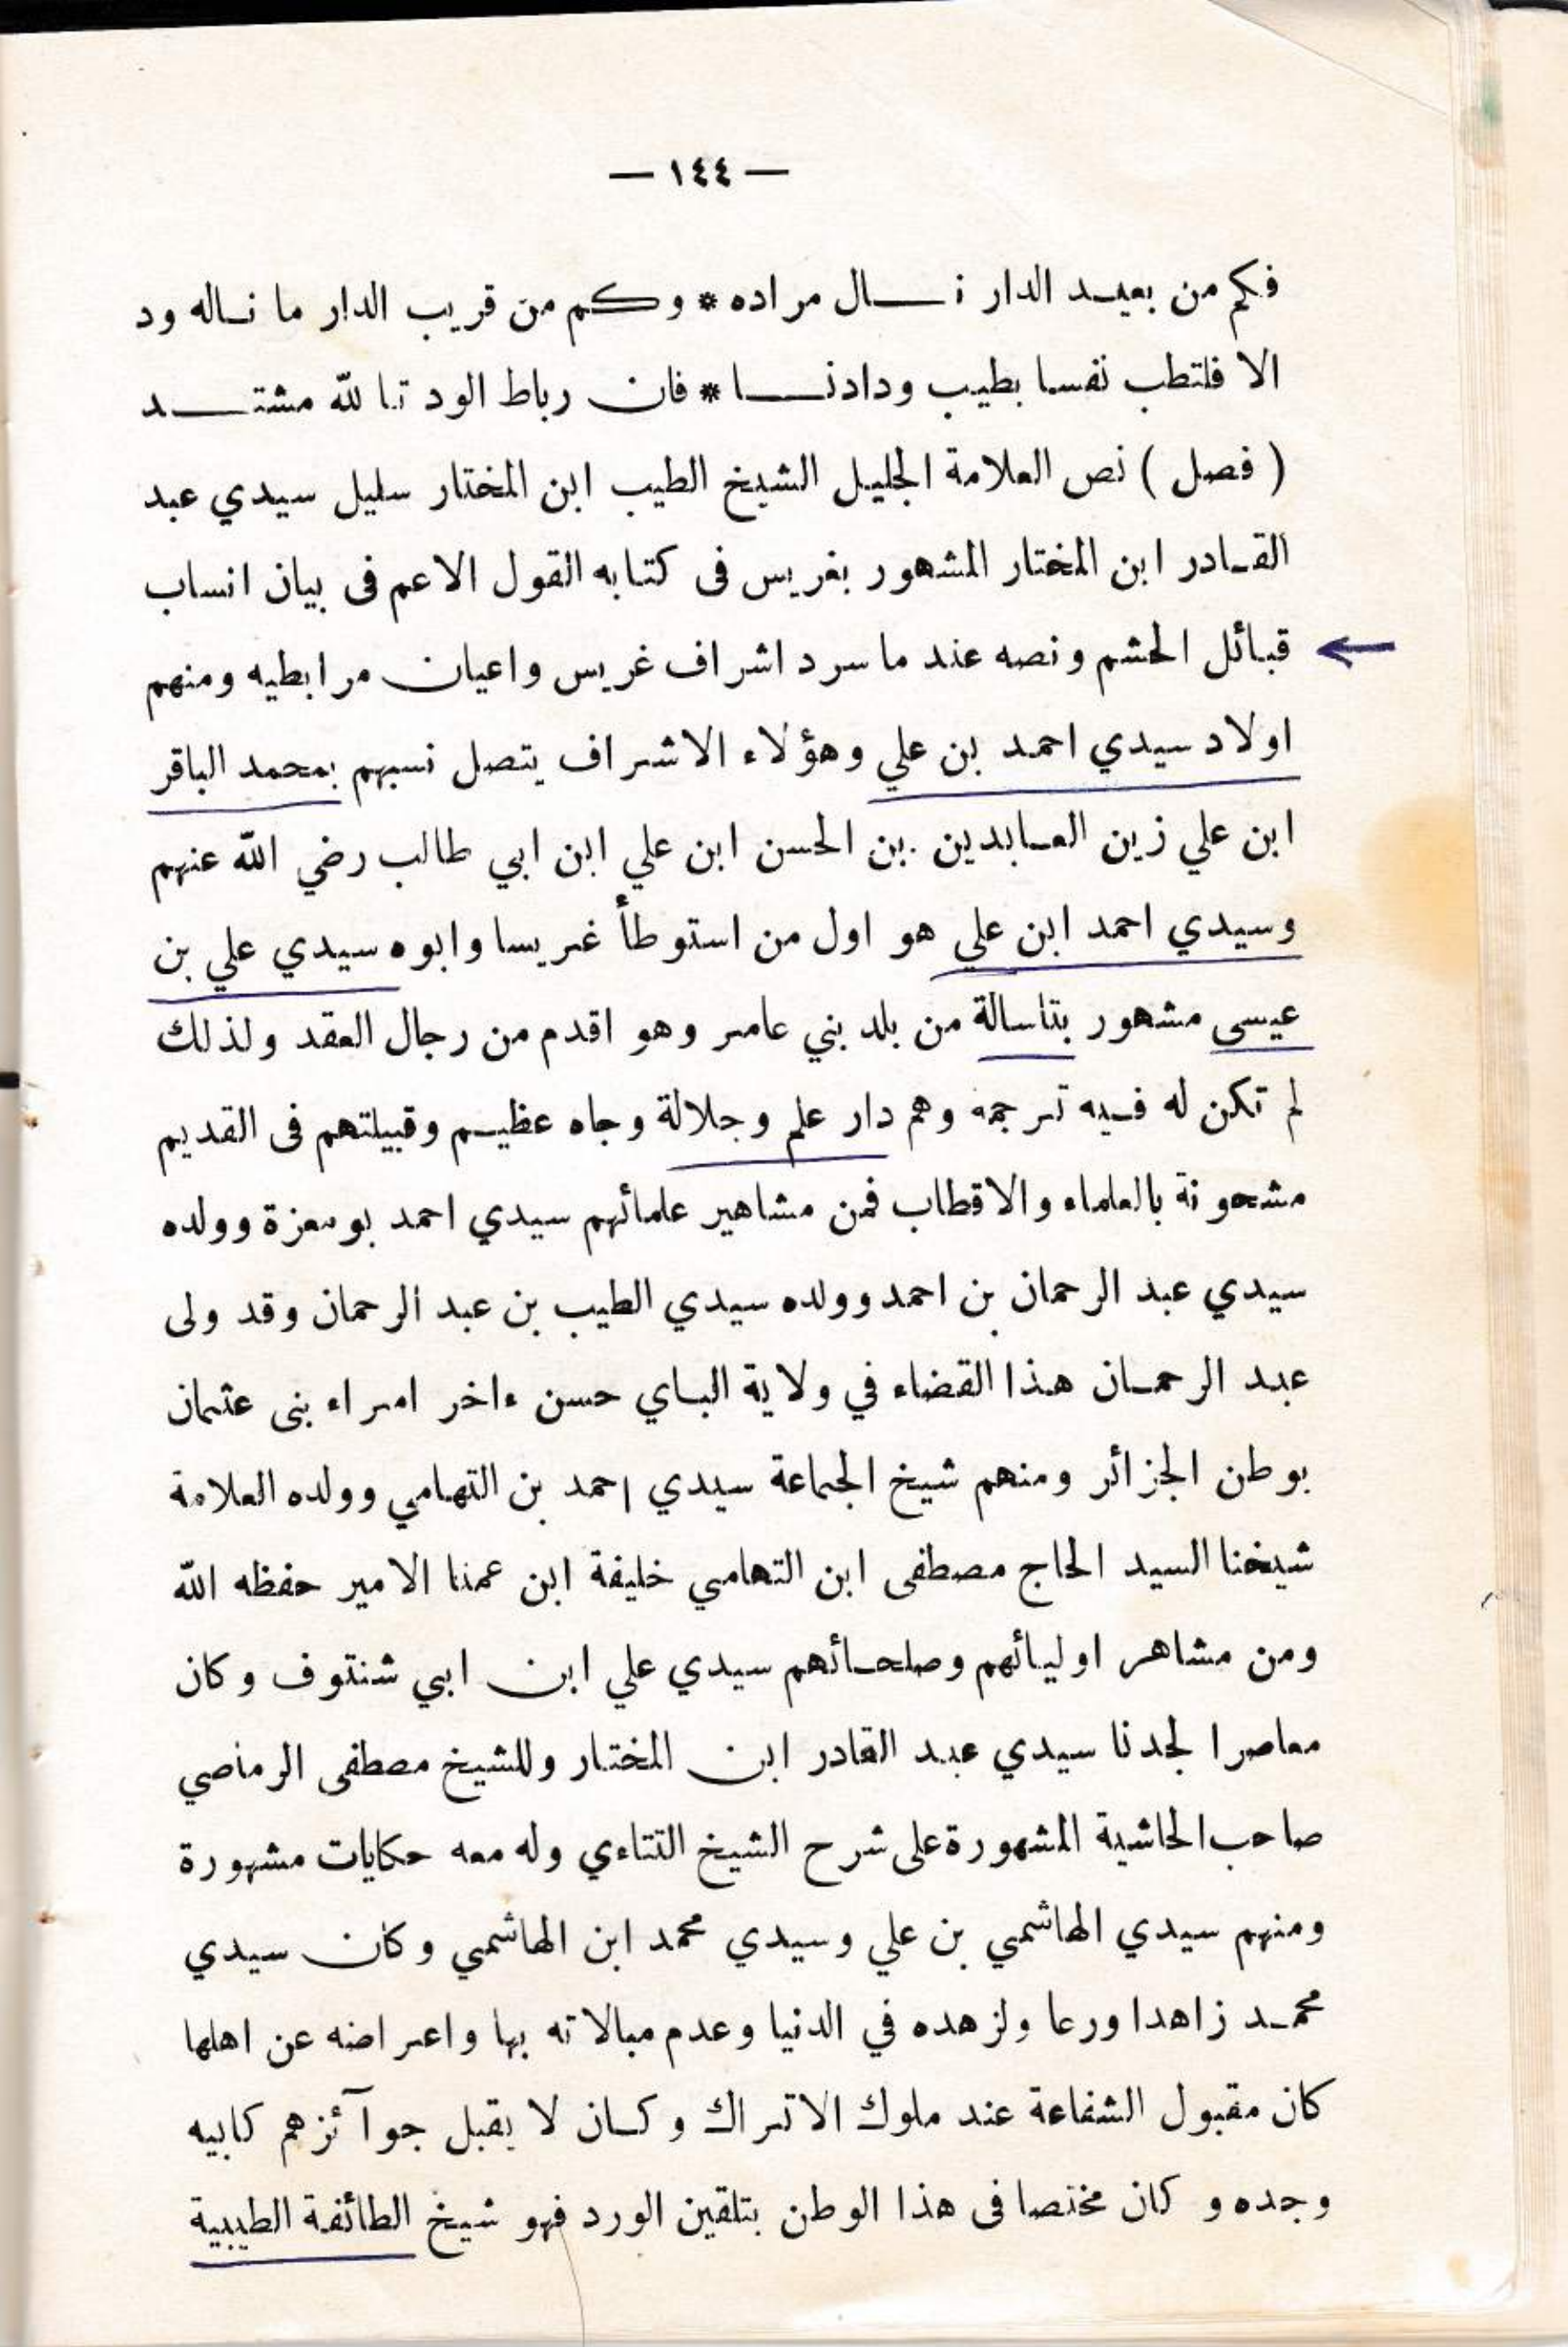 — ١٤٤ —
فكم من بعيد الدار نال مراده * وكم من قريب الدار ما ناله ود
الا فلتطب نفسا بطيب ودادنا * فان رباط الود تا لله مشتد
( فصل ) نص العلامة الجليل الشيخ الطيب ابن المختار سليل سيدي عبد
القادر ابن المختار المشهور بغريس فى كتابه القول الاعم فى بيان انساب
قبائل الحشم ونصه عند ما سرد اشراف غريس واعيان مرابطيه ومنهم
اولاد سيدي احمد بن علي وهؤلاء الاشراف يتصل نسبهم بمحمد الباقر
ابن علي زين العابدين بن الحسن ابن علي ابن ابي طالب رضي الله عنهم
وسيدي احمد ابن علي هو اول من استوطأ غريسا وابوه سيدي علي بن
عيسى مشهور بتاسالة من بلد بني عامر وهو اقدم من رجال العقد ولذلك
لم تكن له فيه ترجمة وهم دار علم وجلالة وجاه عظيم وقبيلتهم فى القديم
مشحونة بالعلماء والاقطاب فمن مشاهير علمائهم سيدي احمد بومعزة وولده
سيدي عبد الرحمان بن احمد وولده سيدي الطيب بن عبد الرحمان وقد ولى
عبد الرحمان هذا القضاء في ولاية الباي حسن ءاخر امراء بنى عثمان
بوطن الجزائر ومنهم شيخ الجماعة سيدي احمد بن التهامي وولده العلامة
شيخنا السيد الحاج مصطفى ابن التهامي خليفة ابن عمنا الامير حفظه الله
ومن مشاهر اوليائهم وصلحائهم سيدي علي ابن ابي شنتوف وكان
معاصرا لجدنا سيدي عبد القادر ابن المختار وللشيخ مصطفى الرماصي
صاحب الحاشية المشهورة على شرح الشيخ التتاءي وله معه حكايات مشهورة
ومنهم سيدي الهاشمي بن علي وسيدي محمد ابن الهاشمي وكان سيدي
محمد زاهدا ورعا ولزهده في الدنيا وعدم مبالاته بها واعراضه عن اهلها
كان مقبول الشفاعة عند ملوك الاتراك وكان لا يقبل جوآئزهم كابيه
وجده و كان مختصا فى هذا الوطن بتلقين الورد فهو شيخ الطائفة الطيبية